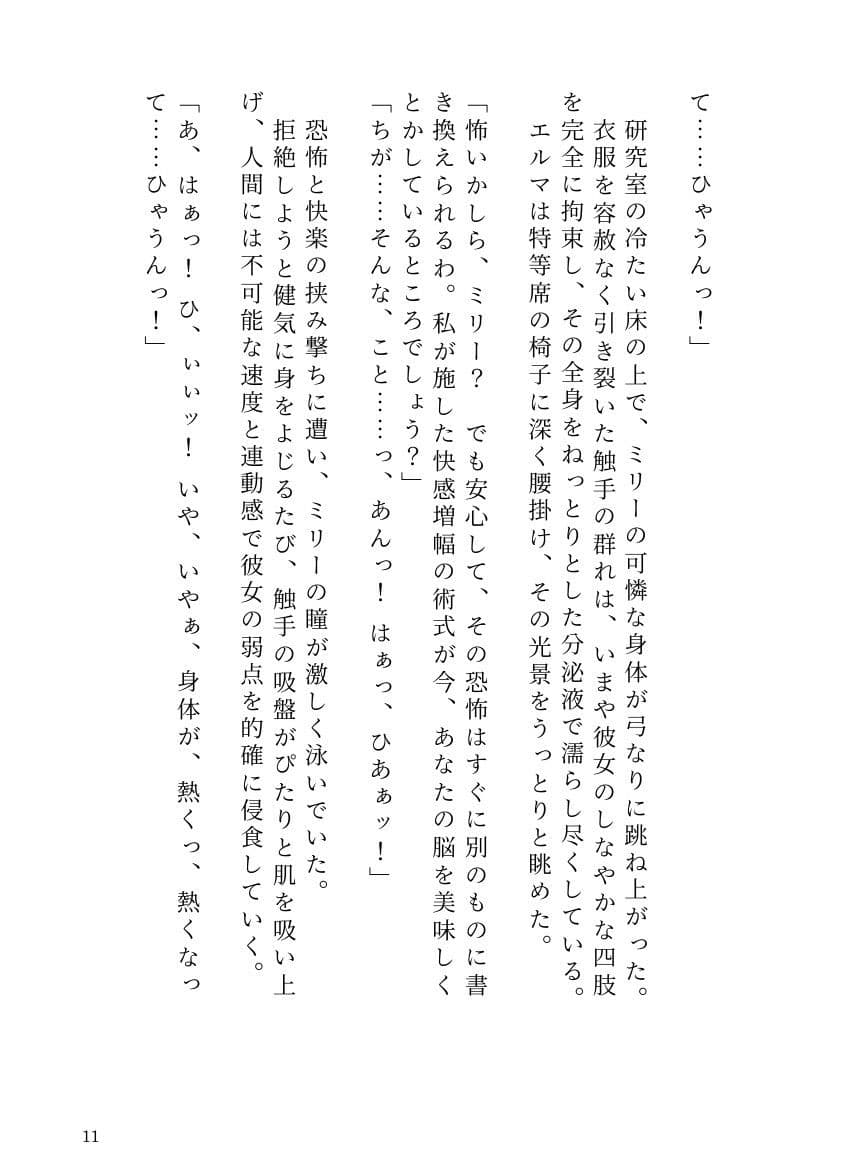 て……ひゃうんっ！」
研究室の冷たい床の上で、ミリーの可憐な身体が弓なりに跳ね上がった。
衣服を容赦なく引き裂いた触手の群れは、いまや彼女のしなやかな四肢
を完全に拘束し、その全身をねっとりとした分泌液で濡らし尽くしている。
エルマは特等席の椅子に深く腰掛け、その光景をうっとりと眺めた。
「怖いかしら、ミリー？　でも安心して、その恐怖はすぐに別のものに書
き換えられるわ。私が施した快感増幅の術式が今、あなたの脳を美味しく
とかしているところでしょう？」
「ちが……そんな、こと……っ、あんっ！　はぁっ、ひあぁッ！」
恐怖と快楽の挟み撃ちに遭い、ミリーの瞳が激しく泳いでいた。
拒絶しようと健気に身をよじるたび、触手の吸盤がぴたりと肌を吸い上
げ、人間には不可能な速度と連動感で彼女の弱点を的確に侵食していく。
「あ、はぁっ！　ひ、ぃぃッ！　いや、いやぁ、身体が、熱くっ、熱くなっ
て……ひゃうんっ！」
11